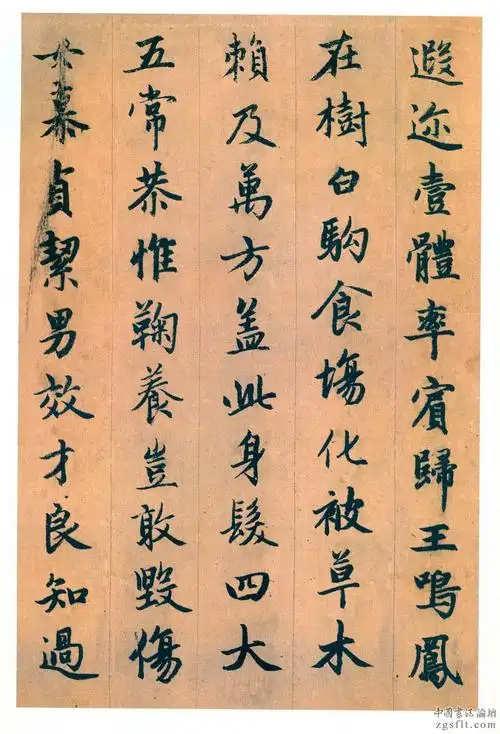 遐迩壹體率賓歸王鳴鳳
在樹白駒食場化被草木
賴及萬方盖此身髮四大
五常恭惟鞠養豈敢毀傷
女慕貞絜男效才良知過
中國書法論壇
zgsflt.com